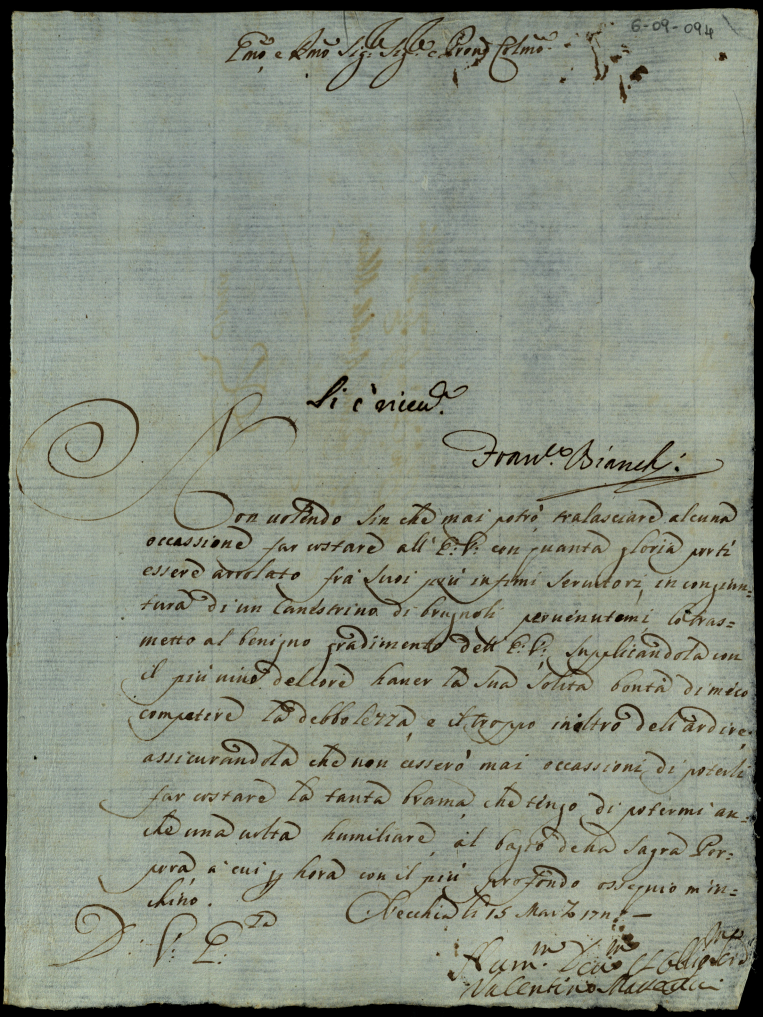 6-09-094
Emo e Rmo Sig: Sig: e Pron Colmo
Si è riceu:
Fran.co Bianch:
Non uolendo sin che mai potrò tralasciare alcuna
occassione far costare all' E: V: con quanta gloria porti
essere arrolato frà suoi più infimi seruitori, in congiun=
tura di un Canestrino di brugnoli peruenutomi lo tras=
metto al benigno gradimento dell' E: V: supplicandola con
il più uiuo del core hauer la sua solita bontà di meco
compatire la debbolezza e il troppo inoltro dell'ardire
assicurandola che non cesserò mai occassioni di poterli
far costare la tanta brama che tengo di potermi an=
che una uolta humiliare al bagio della Sagra Por=
pora à cui p hora con il più profondo ossequio m'in=
chino. Vecchia li 15 Marzo
D: V: E:za
Hum:mo Deu:mo Oblig:mo
Valentino